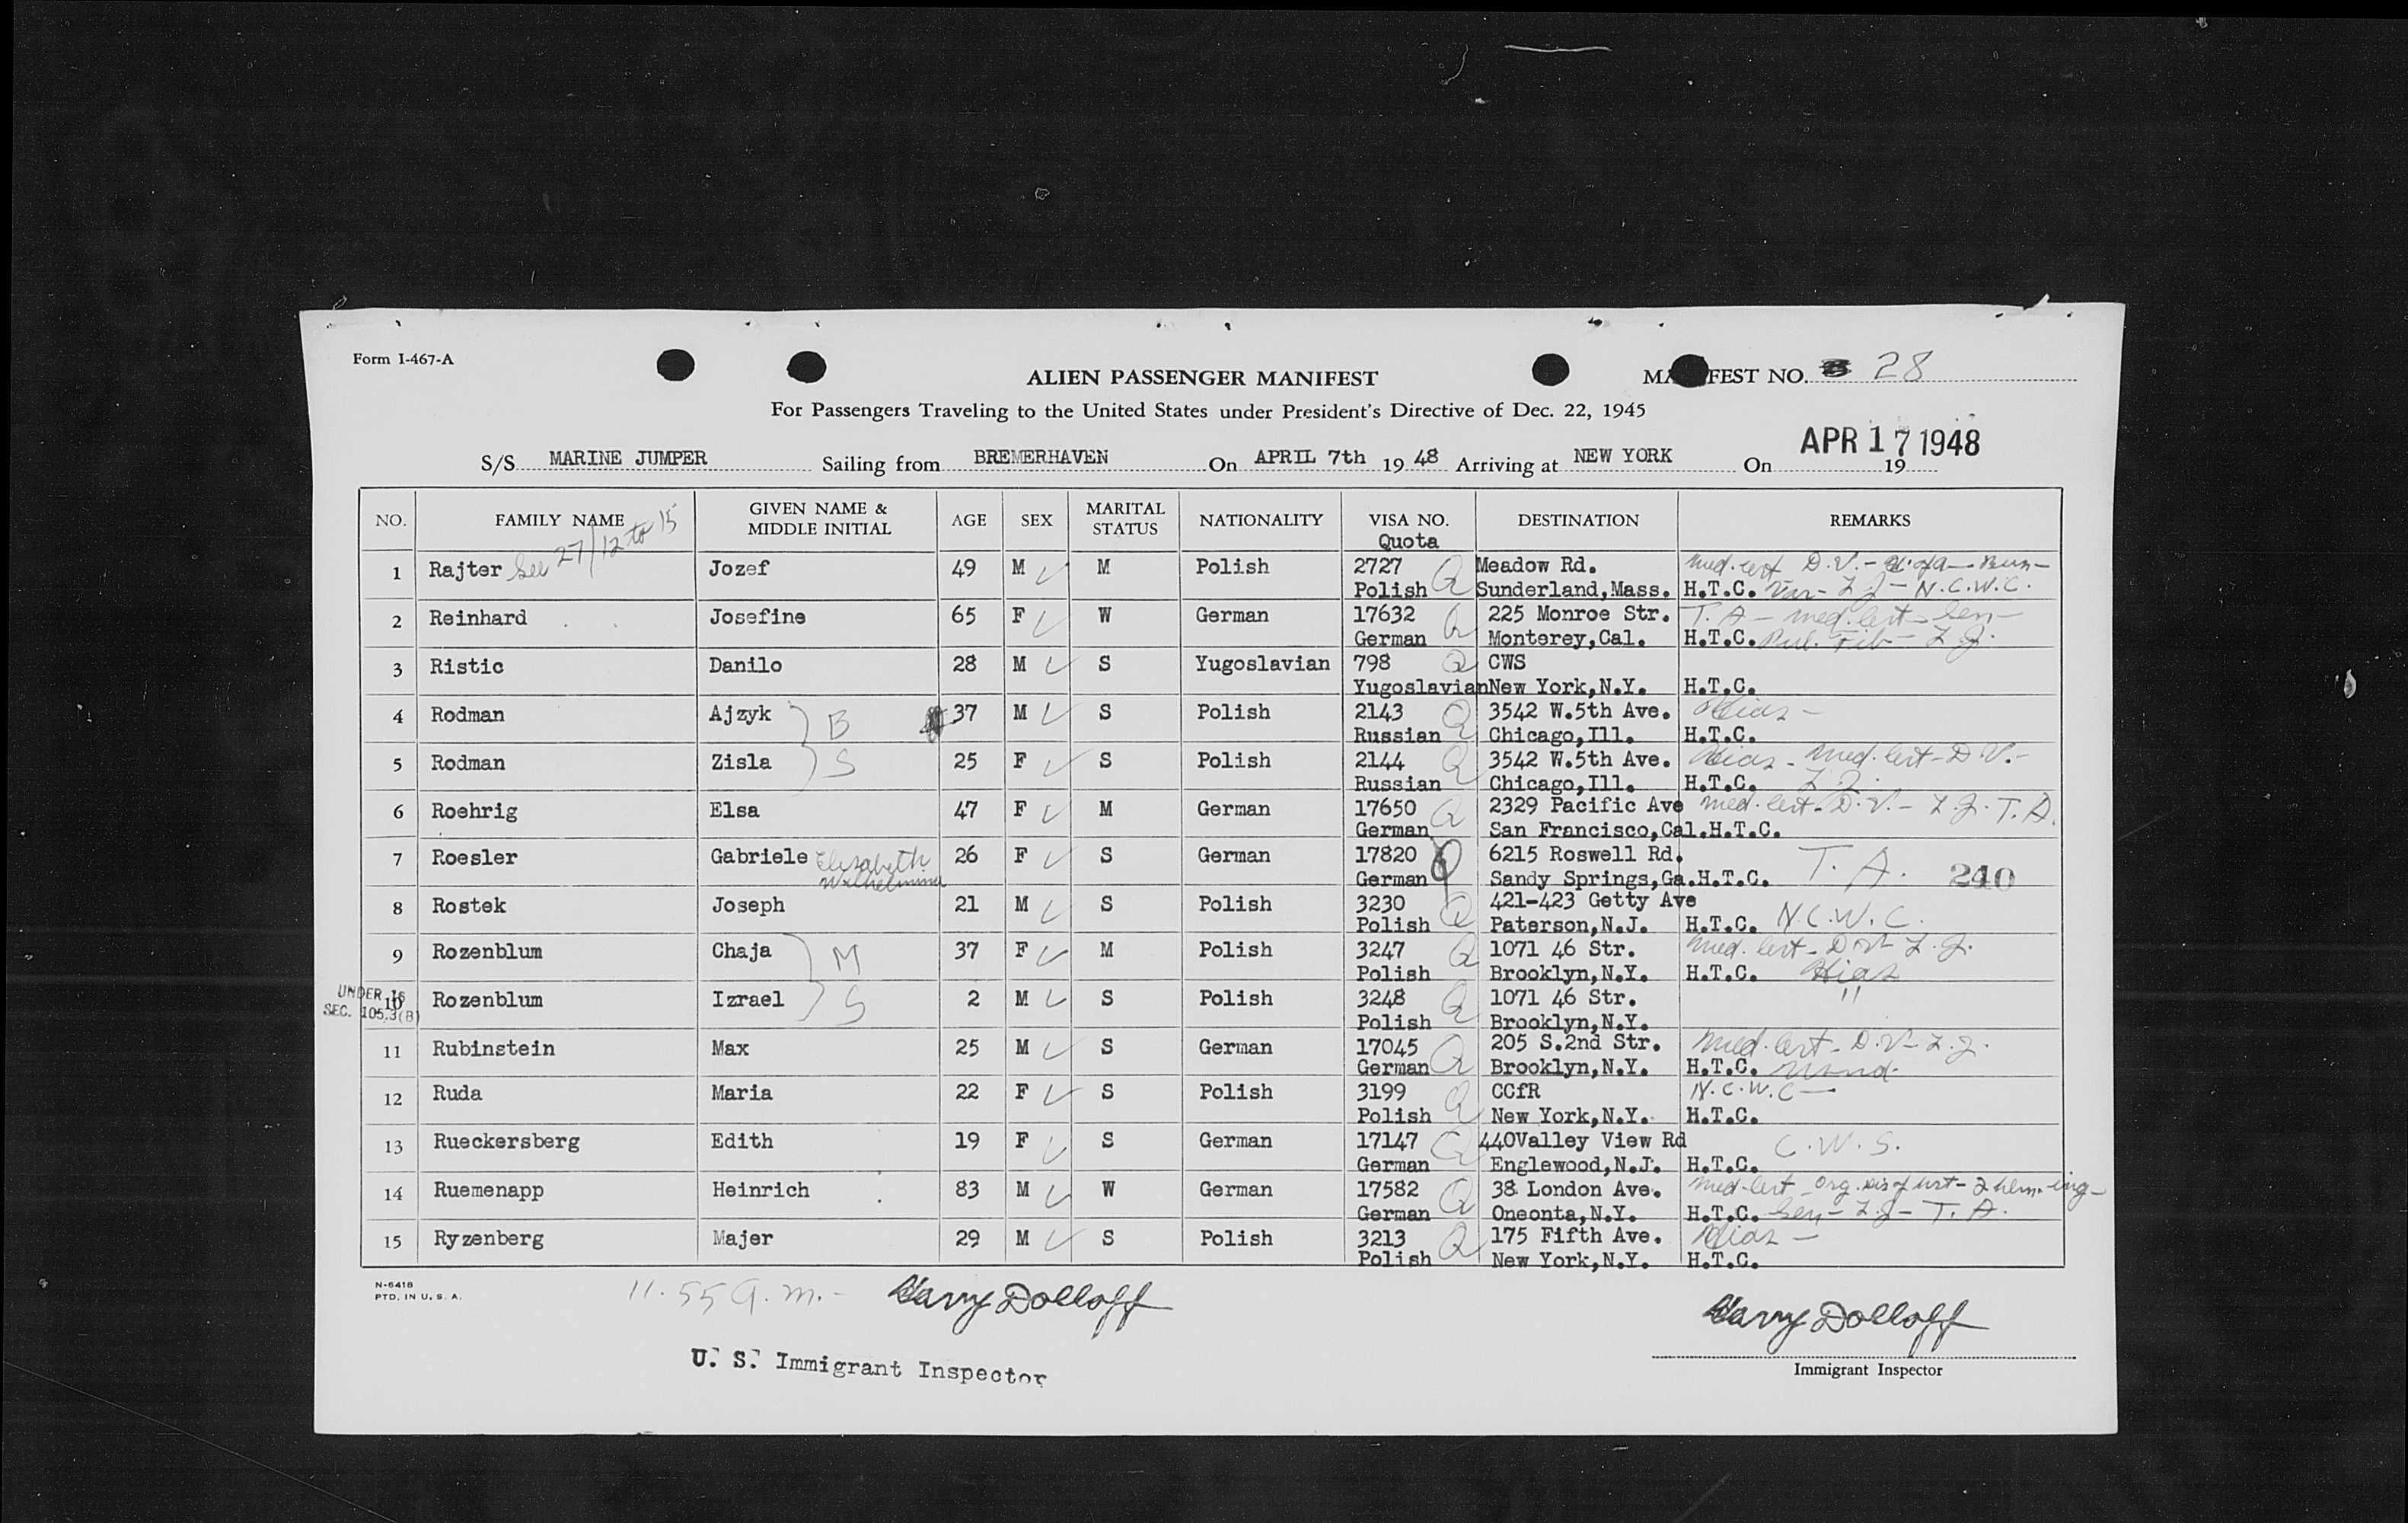 Form I-467-A
ALIEN PASSENGER MANIFEST
MA FEST NO. 28
For Passengers Traveling to the United States under President's Directive of Dec. 22, 1945
S/S MARINE JUMPER Sailing from BREMERHAVEN On APRIL 7th 19 48 Arriving at NEW YORK On 19 APR 17 1948
NO. FAMILY NAME GIVEN NAME & MIDDLE INITIAL AGE SEX MARITAL STATUS NATIONALITY VISA NO. Quota DESTINATION REMARKS
See 27/12 to 15
1 Rajter Jozef 49 M M Polish 2727 Q Meadow Rd. med. cert D.V.
Polish Sunderland,Mass. H.T.C. N.C.W.C.
2 Reinhard Josefine 65 F W German 17632 Q 225 Monroe Str. T.A - med. cert - Sen -
German Monterey,Cal. H.T.C. Pul. Fib -
3 Ristic Danilo 28 M S Yugoslavian 798 Q CWS
Yugoslavian New York,N.Y. H.T.C.
4 Rodman Ajzyk B 37 M S Polish 2143 Q 3542 W.5th Ave. Hias -
Russian Chicago,Ill. H.T.C.
5 Rodman Zisla S 25 F S Polish 2144 Q 3542 W.5th Ave. Hias - med. cert - D.V. -
Russian Chicago,Ill. H.T.C.
6 Roehrig Elsa 47 F M German 17650 Q 2329 Pacific Ave med. cert - D.V. - T.A.
German San Francisco,Cal. H.T.C.
7 Roesler Gabriele Elisabeth Wilhelmina 26 F S German 17820 Q 6215 Roswell Rd. T.A. 240
German Sandy Springs,Ga. H.T.C.
8 Rostek Joseph 21 M S Polish 3230 Q 421-423 Getty Ave
Polish Paterson,N.J. H.T.C. N.C.W.C.
9 Rozenblum Chaja M 37 F M Polish 3247 Q 1071 46 Str. med. cert - D.V.
Polish Brooklyn,N.Y. H.T.C. Hias
UNDER 16
SEC. 105.3(B)
10 Rozenblum Izrael S 2 M S Polish 3248 Q 1071 46 Str. "
Polish Brooklyn,N.Y.
11 Rubinstein Max 25 M S German 17045 Q 205 S.2nd Str. med. cert - D.V.
German Brooklyn,N.Y. H.T.C.
12 Ruda Maria 22 F S Polish 3199 Q CCfR N.C.W.C -
Polish New York,N.Y. H.T.C.
13 Rueckersberg Edith 19 F S German 17147 Q 440Valley View Rd C.W.S.
German Englewood,N.J. H.T.C.
14 Ruemenapp Heinrich 83 M W German 17582 Q 38 London Ave. med. cert
German Oneonta,N.Y. H.T.C. Sen - T.A.
15 Ryzenberg Majer 29 M S Polish 3213 Q 175 Fifth Ave. Hias -
Polish New York,N.Y. H.T.C.
N-6418
PTD. IN U. S. A.
11.55 a.m. - Harry Dolloff
Harry Dolloff
U. S. Immigrant Inspector
Immigrant Inspector